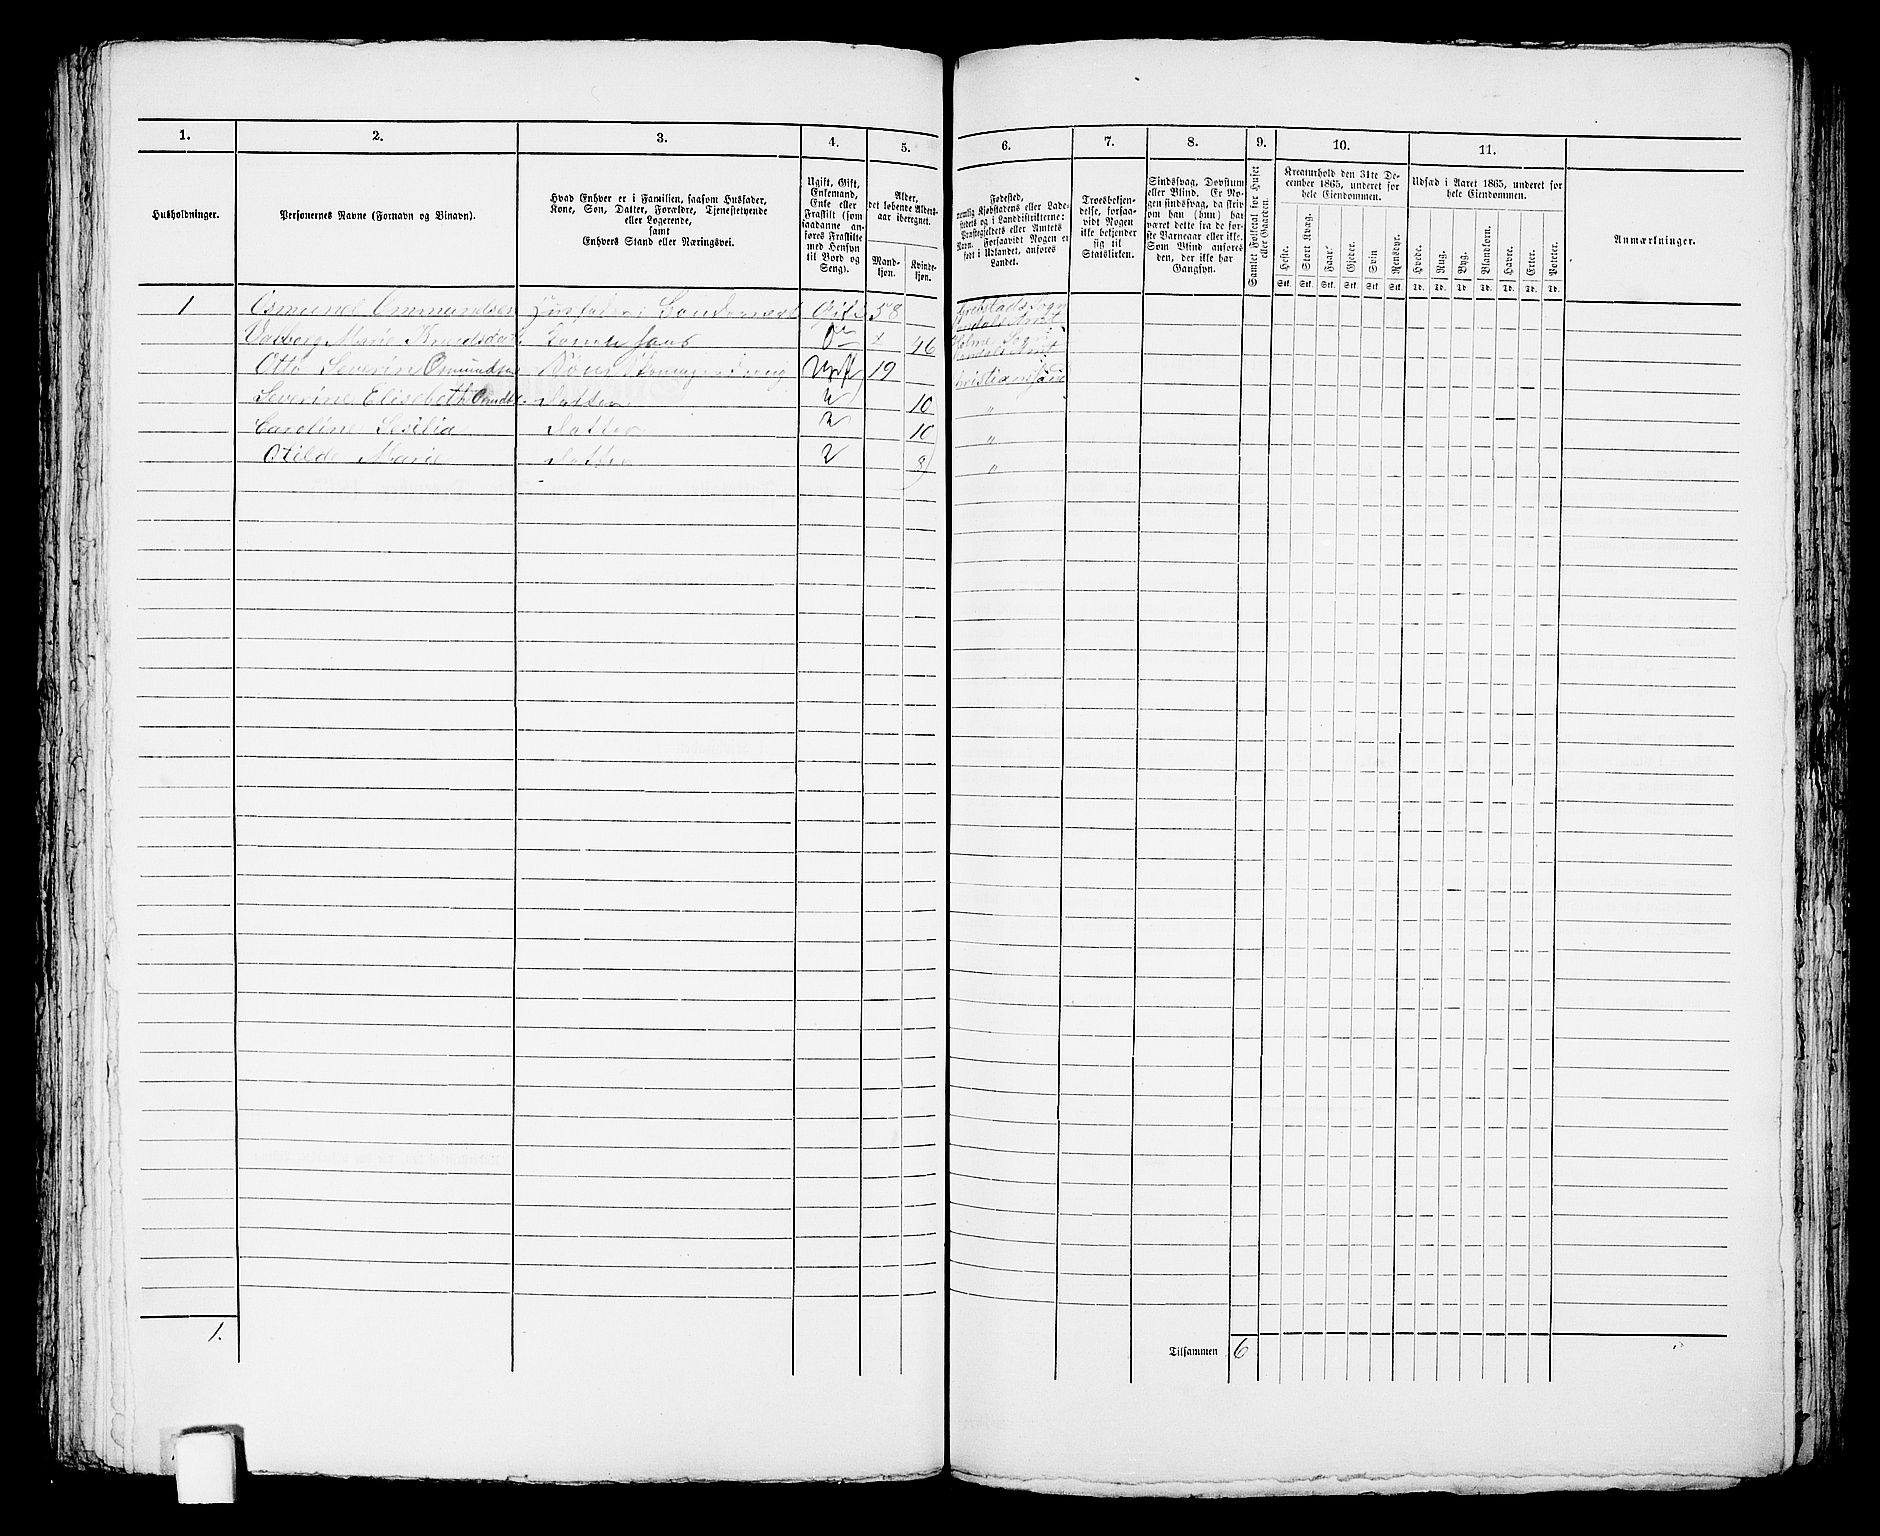 1. 2. 3. 4. 5. 6. 7. 8. 9. 10. 11.
Husholdninger.
Personernes Navne (Fornavn og Binavn).
Hvad Enhver er i Familien, saasom Husfader,
Kone, Søn, Datter, Forældre, Tjenestetyende
eller Logerende,
samt
Enhvers Stand eller Næringsvei.
Ugift, Gift,
Enkemand,
Enke eller
Fraskilt (som
saadanne an-
føres Fraskilte
med Hensyn
til Bord og
Seng).
Alder,
det løbende Alders-
aar iberegnet.
Mand-
kjøn.
Kvinde-
kjøn.
Fødested,
nemlig Kjøbstadens eller Lade-
stedets og i Landdistrikterne:
Præstegjeldets eller Amtets
Navn. Forsaavidt Nogen er
født i Udlandet, anføres
Landet.
Troesbekjen-
delse, forsaa-
vidt Nogen
ikke bekjender
sig til
Statskirken.
Sindssvag, Døvstum
eller Blind. Er No-
gen sindssvag, da skriv
om han (hun) har
været dette fra de før-
ste Barneaar eller ikke.
Som Blind anføres
den, der ikke har
Gangsyn.
Gamlet Folketal for Huset
eller Gaarden.
Kreaturhold den 31te De-
cember 1865, underet for
hele Eiendommen.
Heste. Stort Kvæg. Faar. Gjeder. Svin Rensdyr.
Stk. Stk. Stk. Stk. Stk. Stk.
Udsæd i Aaret 1865, underet for
hele Eiendommen.
Hvede. Rug. Byg. Blandkorn. Havre. Erter. Poteter.
Td. Td. Td. Td. Td. Td. Td.
Anmærkninger.
1 Osmund Ommundsen Husfader Gift 58
Marie Do 46
Otto Severin Osmundsen Søn Ugift 19 Christianssand
Severine Elisebeth Datter 10 "
Caroline Datter 10 "
Otilde Marie Datter 8 "
1.
Tilsammen 6